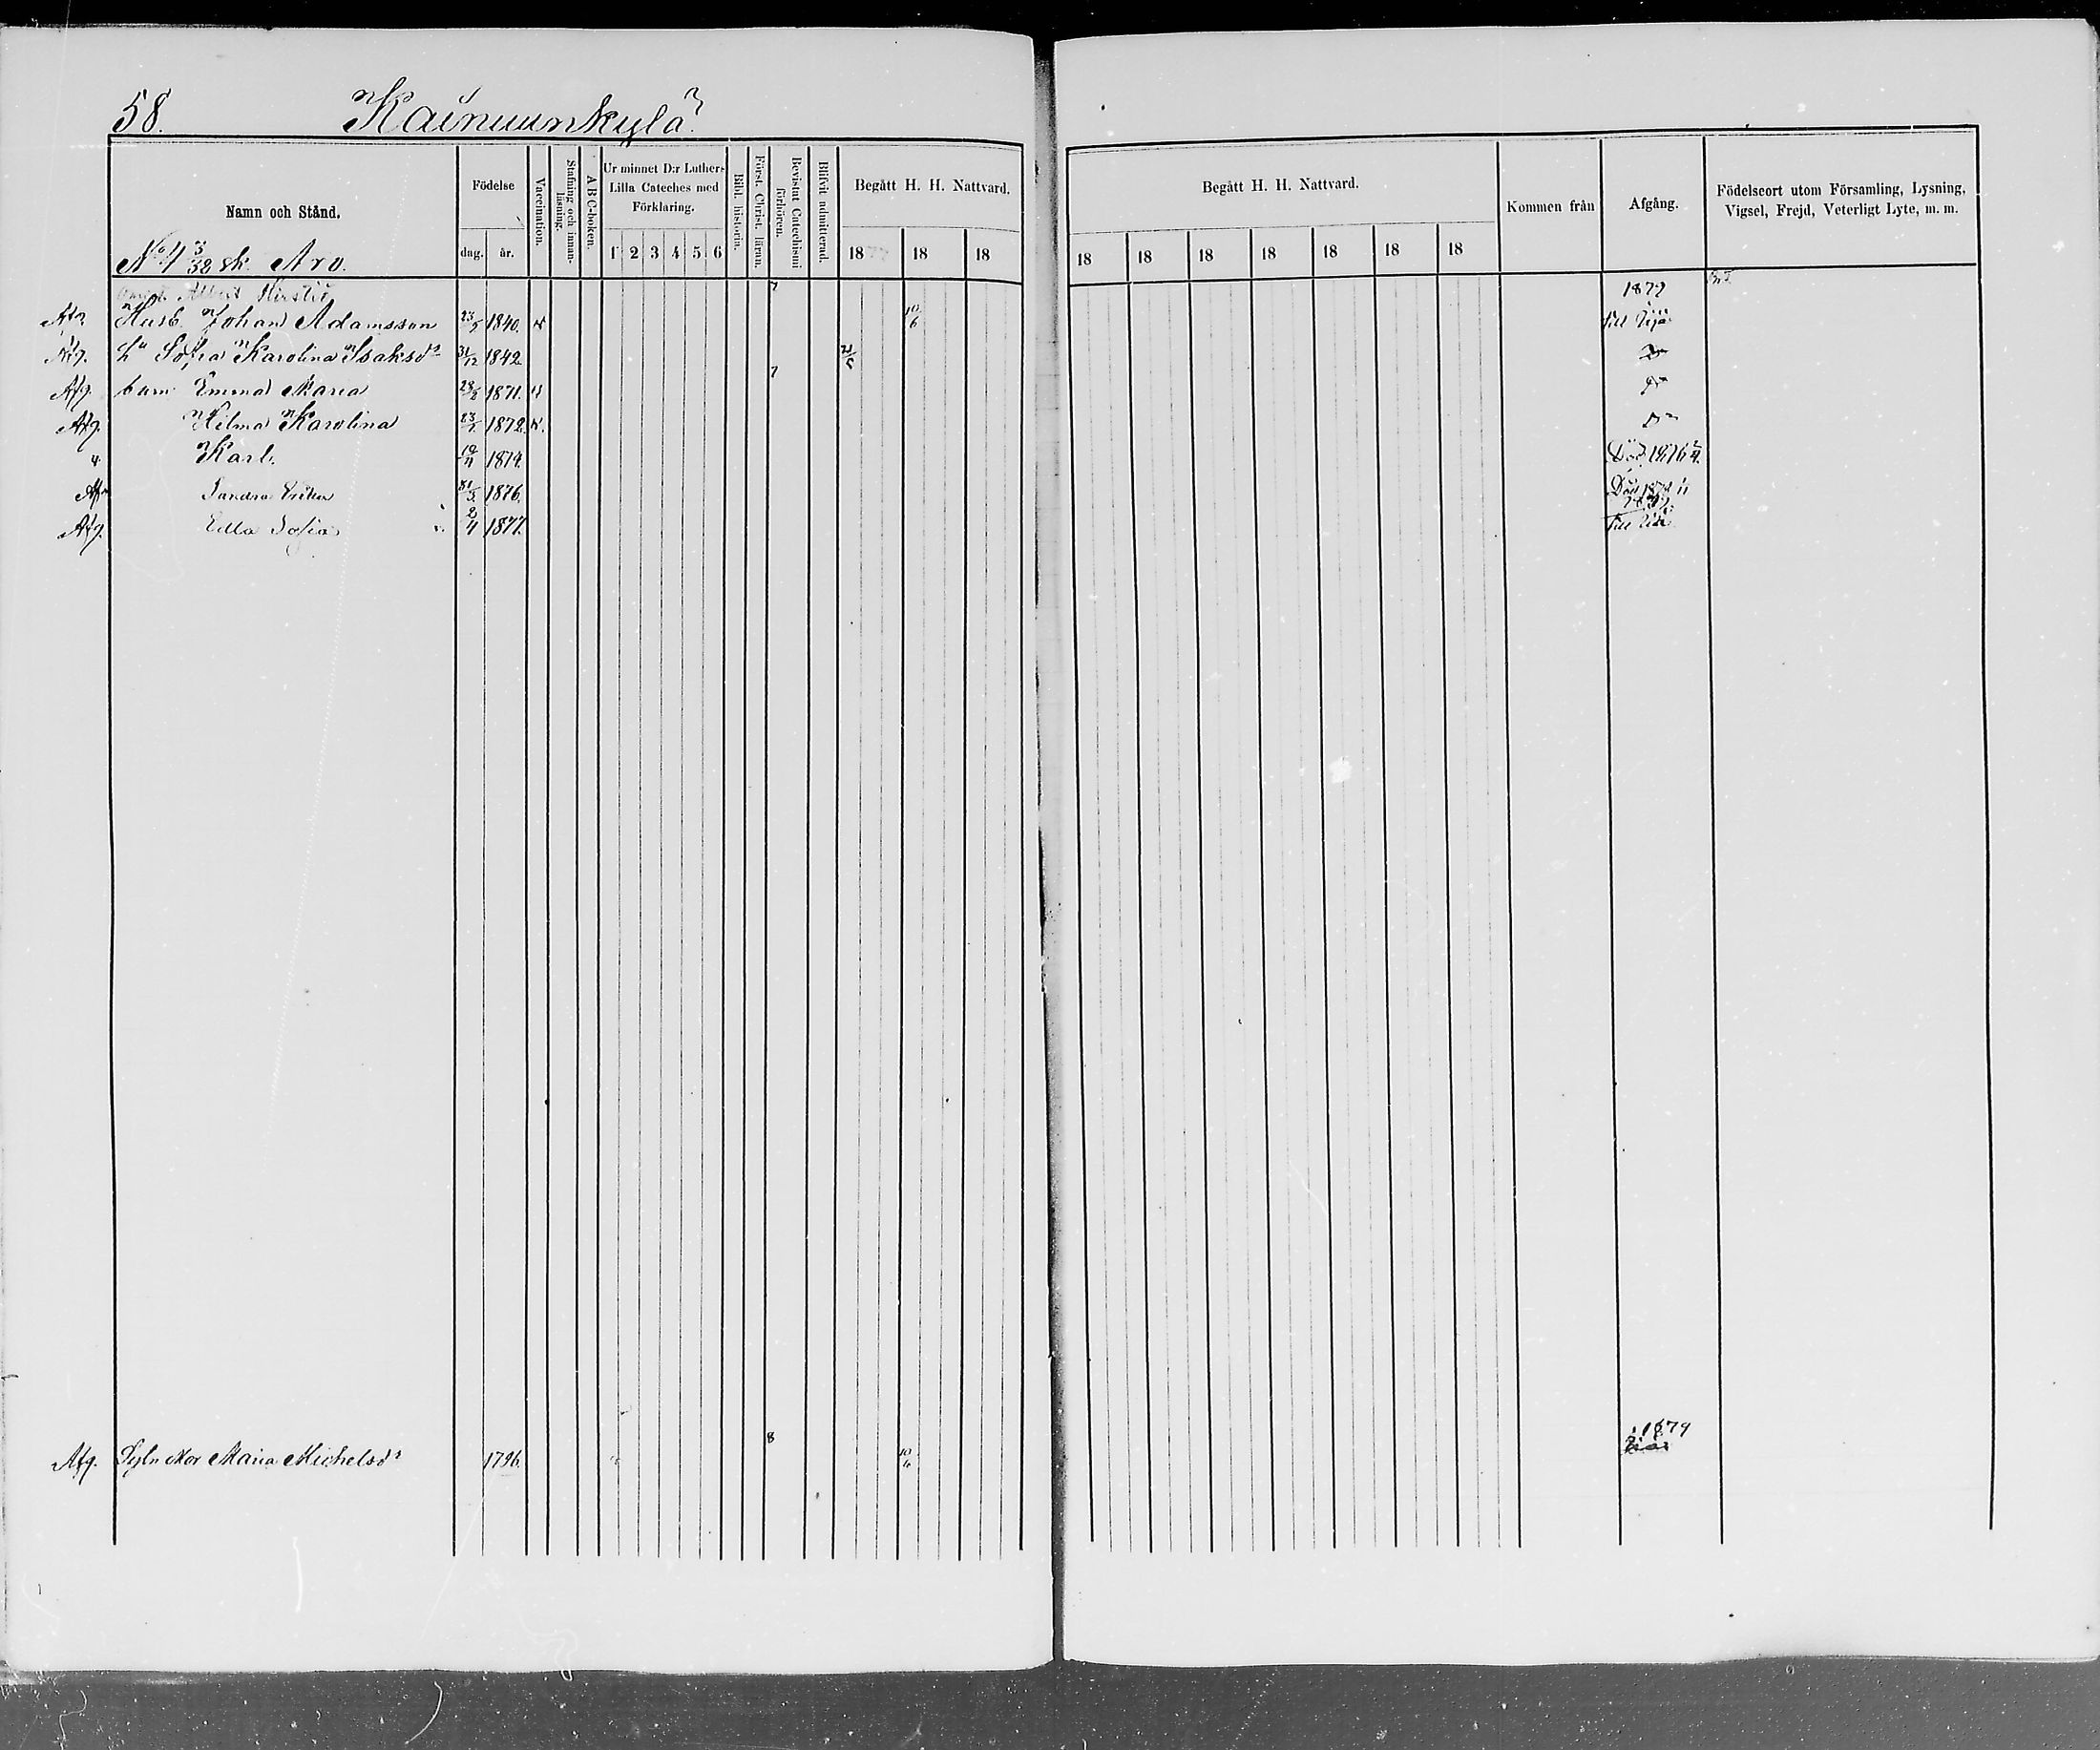 58. Kainuunkylä
Namn och Stånd.
Födelse
dag. år.
Vaccination.
Stafning och innan-läsning.
A B C-boken.
Ur minnet D:r Luthers
Lilla Cateches med
Förklaring.
1 2 3 4 5 6
Bibl. historia.
Först. Christ. läran.
Bevistat Catechismi förhören.
Blifvit admitterad.
Begått H. H. Nattvard.
18 18 18
Begått H. H. Nattvard.
18 18 18 18 18 18 18
Kommen från
Afgång.
Födelseort utom Församling, Lysning,
Vigsel, Frejd, Veterligt Lyte, m. m.
No 4 3/32 sk. Aro.
Albert 7 1879
Afg. Husb. Johan Adamsson 23/5 1840. v 10/6 till
Afg. Hu Sofia Karolina Isaksdr 31/12 1842 Do
7
Afg. barn Emma Maria 28/2 1871. v Do
Afg. Hilma Karolina 23/7 1872. v. Do
Karl. 19/11 1874. Död 1876
Sandra 31/3 1876. Död
Afg. Edla Sofia 2/11 1877. till
8 1879
Afg. Sytn Mor Maria Michelsdr 1796. 10/6